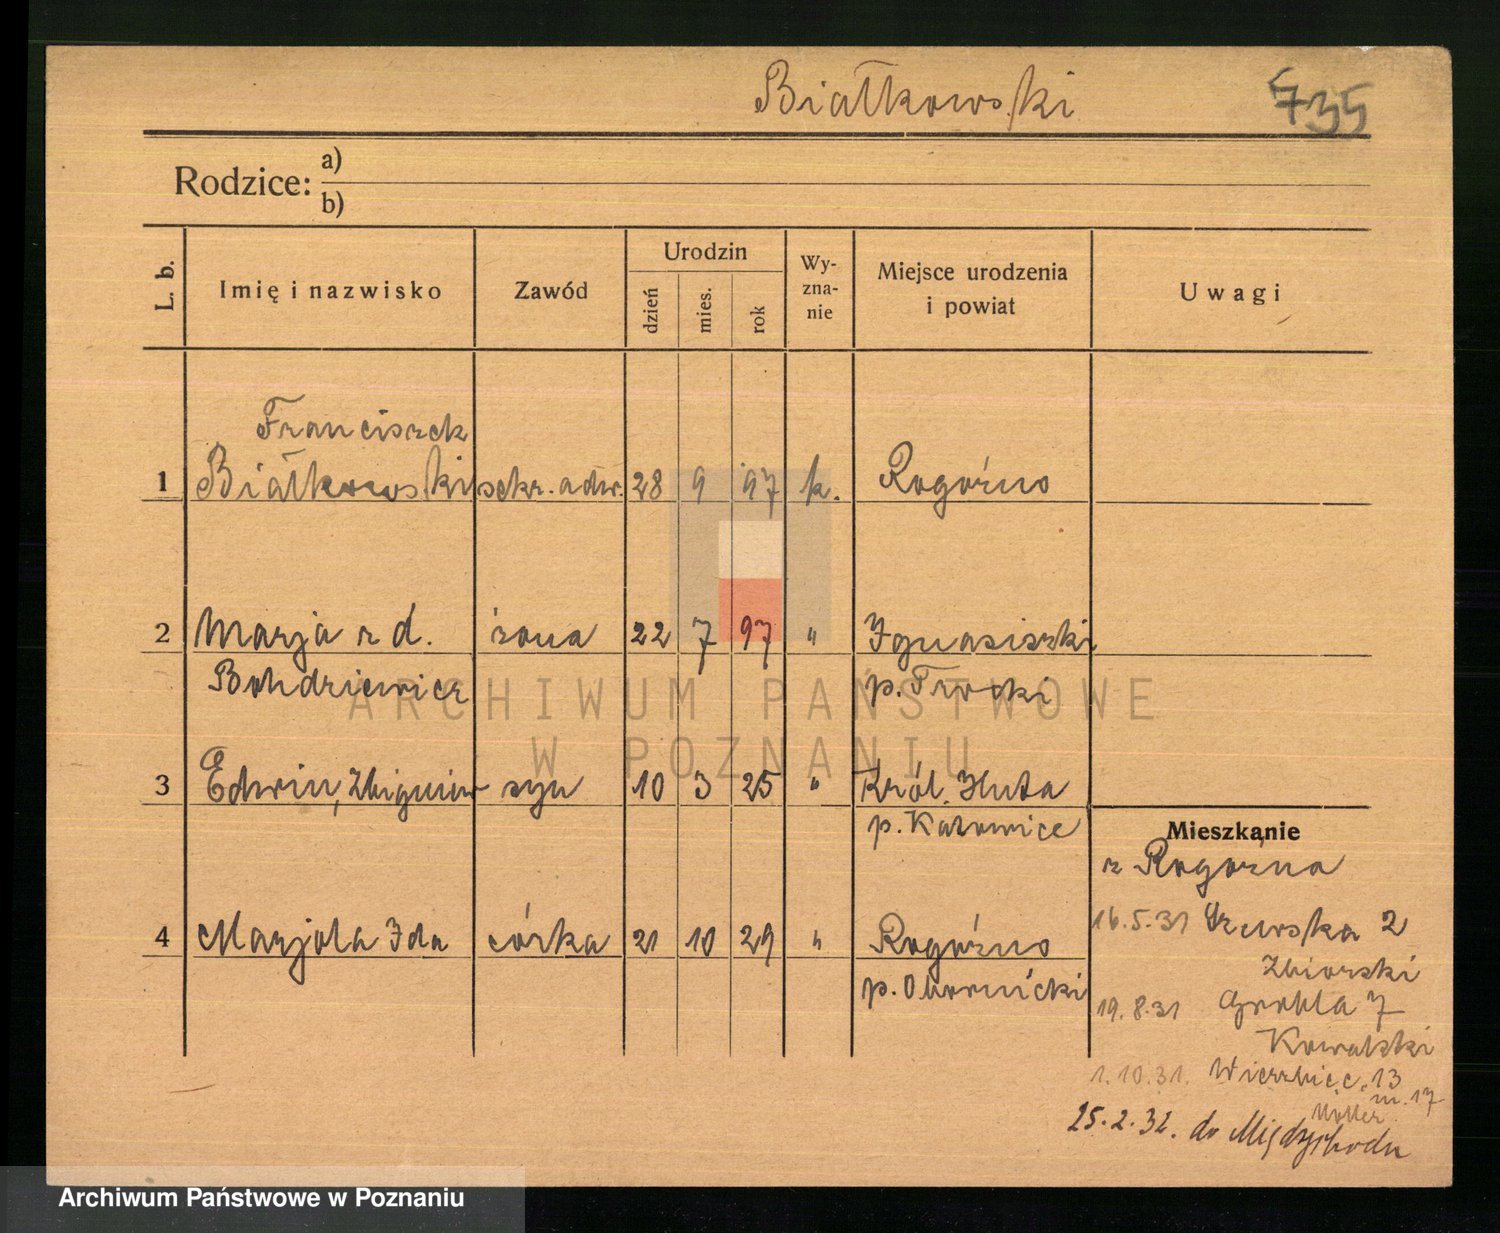 Białkowski
735
Rodzice: a)
b)
L. b.
Imię i nazwisko
Zawód
Urodzin
dzień
mies.
rok
Wy-
zna-
nie
Miejsce urodzenia
i powiat
Uwagi
Franciszek
1 Białkowski sekr. adw. 28 9 97 k. Rogoźno
2 Marja z d. żona 22 7 97 " Ignasiszki
Bohdziewicz p. Trocki
3 Edwin, Zbigniew syn 10 3 25 " Król. Huta
p. Katowice
4 Marjola Ida córka 21 10 29 " Rogoźno
p. Obornicki
Mieszkanie
z Rogoźna
16.5.31 2
Zbiorski
19.8.31 Grobla 7
Kowalski
1.10.31. Wierzbięc. 13
m. 17
Müller
25.2.32. do Międzychodu
ARCHIWUM PAŃSTWOWE
W POZNANIU
Archiwum Państwowe w Poznaniu